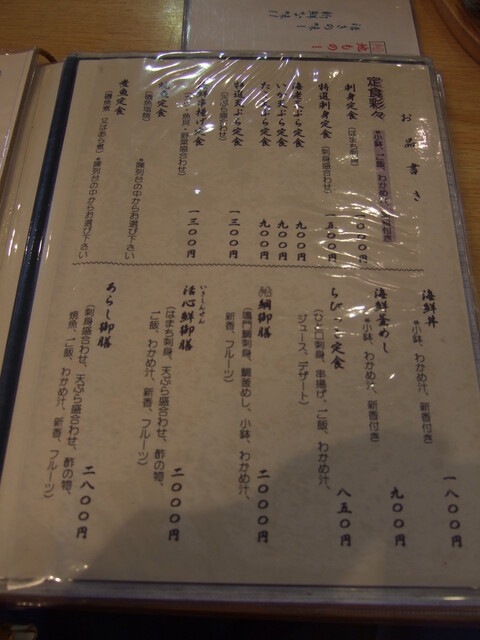 お品書き
定食彩々
刺身定食
(はまち刺身)
特選刺身定食
(刺身盛合わせ)
海老天ぷら定食
九〇〇円
九〇〇円
九〇〇円
特選天ぷら定食
(天ぷら盛合わせ)
一三〇〇円
魚貝・野菜盛合わせ)
一三〇〇円
(磯魚塩焼)
*陳列台の中からお選び下さい
煮魚定食
(磯魚煮 又はあら煮)
*陳列台の中からお選び下さい
海鮮丼
*小鉢、わかめ汁、新香付き
一八〇〇円
海鮮釜めし
*小鉢、わかめ汁、新香付き
九〇〇円
定食
(ひと口刺身、串揚げ、ご飯、わかめ汁、
ジュース、デザート)
八五〇円
鯛御膳
(鳴門鯛刺身、鯛釜めし、小鉢、わかめ汁、
新香、フルーツ)
二〇〇〇円
いきしんぜん
活心鮮御膳
(はまち刺身、天ぷら盛合わせ、酢の物、
ご飯、わかめ汁、新香、フルーツ)
二〇〇〇円
あらし御膳
(刺身盛合わせ、天ぷら盛合わせ、酢の物、
焼魚、ご飯、わかめ汁、新香、フルーツ)
二八〇〇円